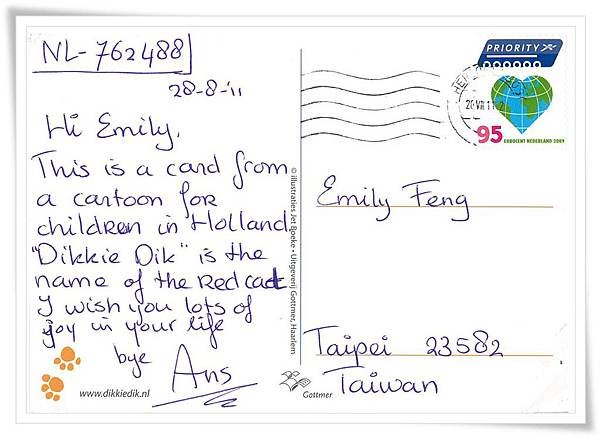 NL-762488
28-8-'11
Hi Emily,
This is a card from
a cartoon for
children in Holland
"Dikkie Dik" is the
name of the Red cat
I wish you lots of
joy in your life
bye
Ans
www.dikkiedik.nl
© Illustraties Jet Boeke • Uitgeverij Gottmer, Haarlem
Gottmer
PRIORITY
95
EUROCENT NEDERLAND 2009
Emily Feng
Taipei 23582
Taiwan